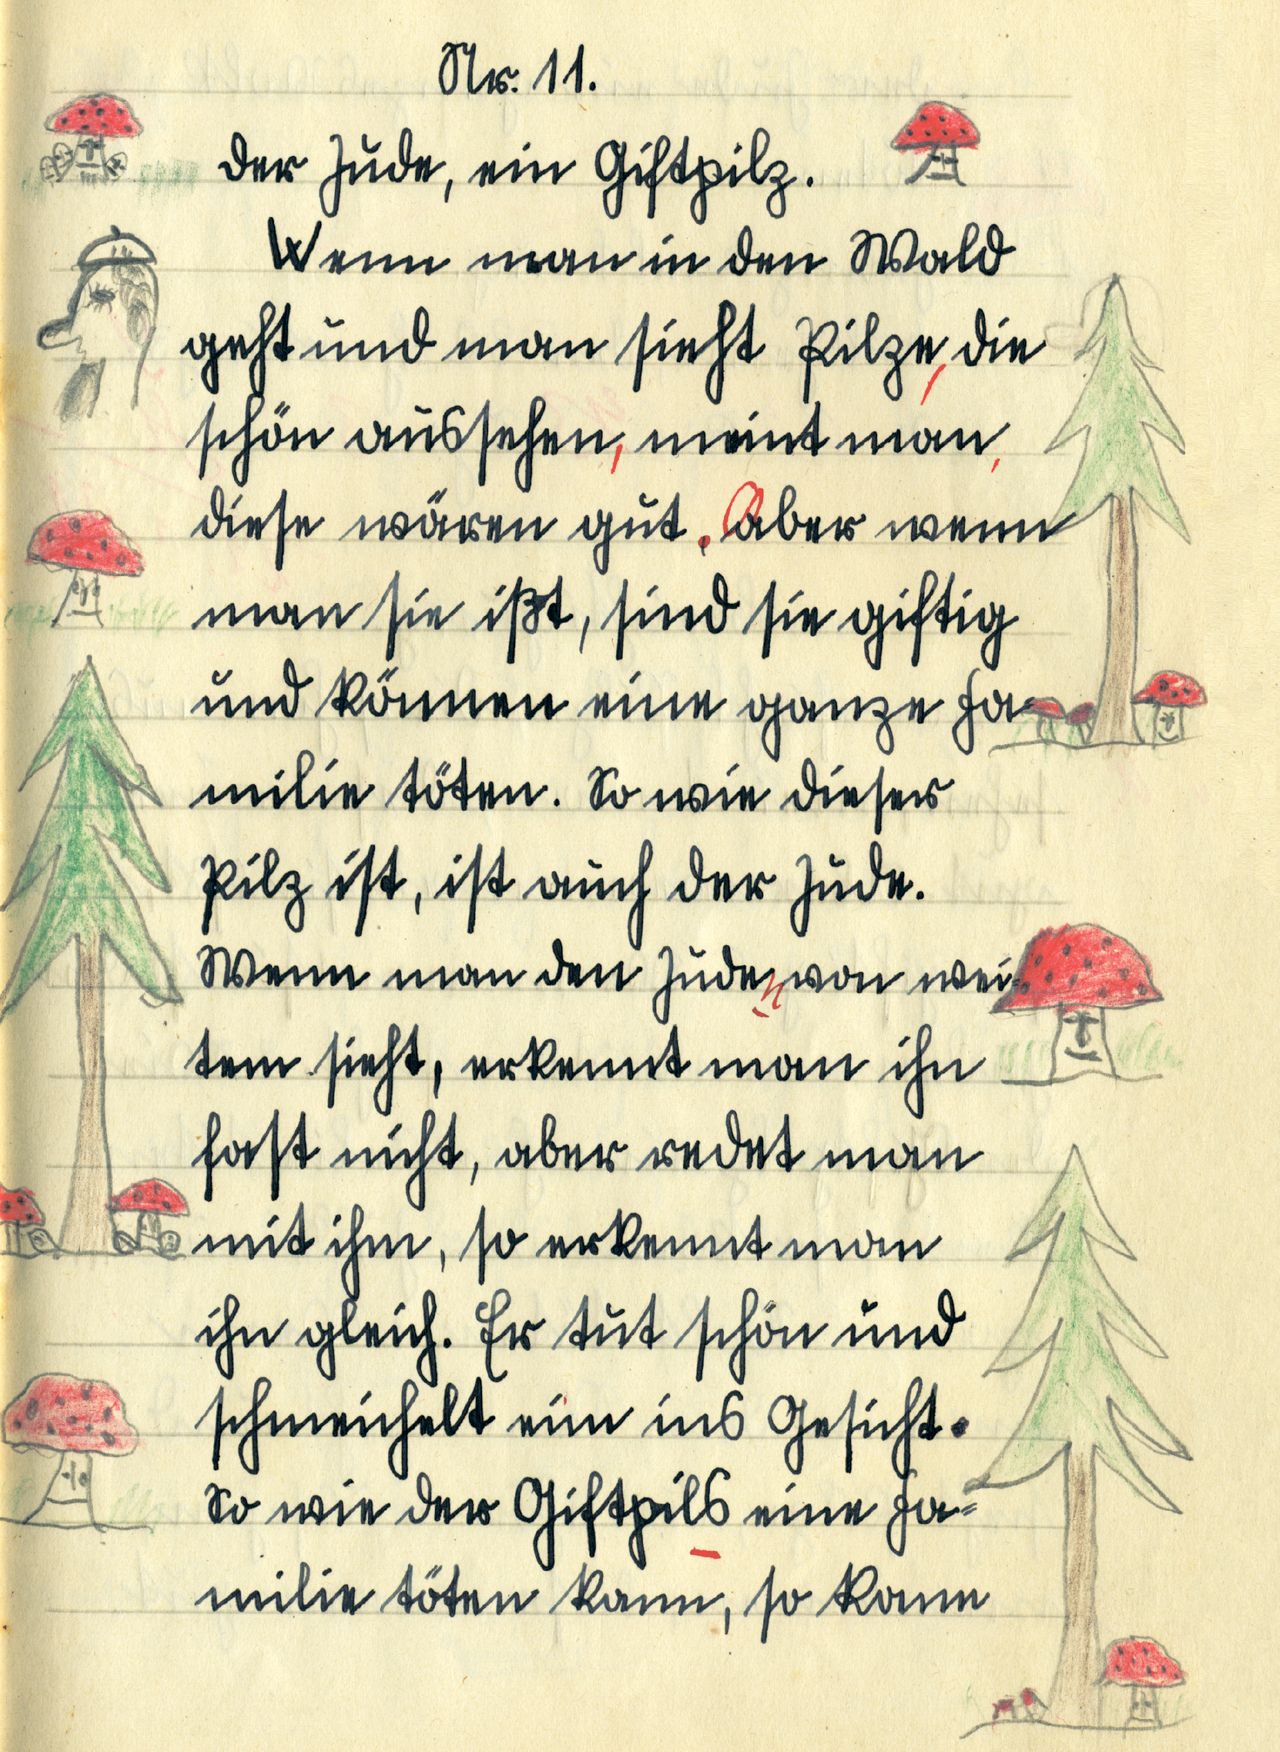 Nr. 11.
Der Jude, ein Giftpilz.
Wenn man in den Wald
geht und man sieht Pilze, die
schön aussehen, meint man,
diese wären gut. Aber wenn
man sie ißt, sind sie giftig
und können eine ganze Fa-
milie töten. So wie dieser
Pilz ist, ist auch der Jude.
Wenn man den Juden von wei-
tem sieht, erkennt man ihn
fast nicht, aber redet man
mit ihm, so erkennt man
ihn gleich. Er tut schön und
schmeichelt eim ins Gesicht.
So wie der Giftpils eine Fa-
milie töten kann, so kann